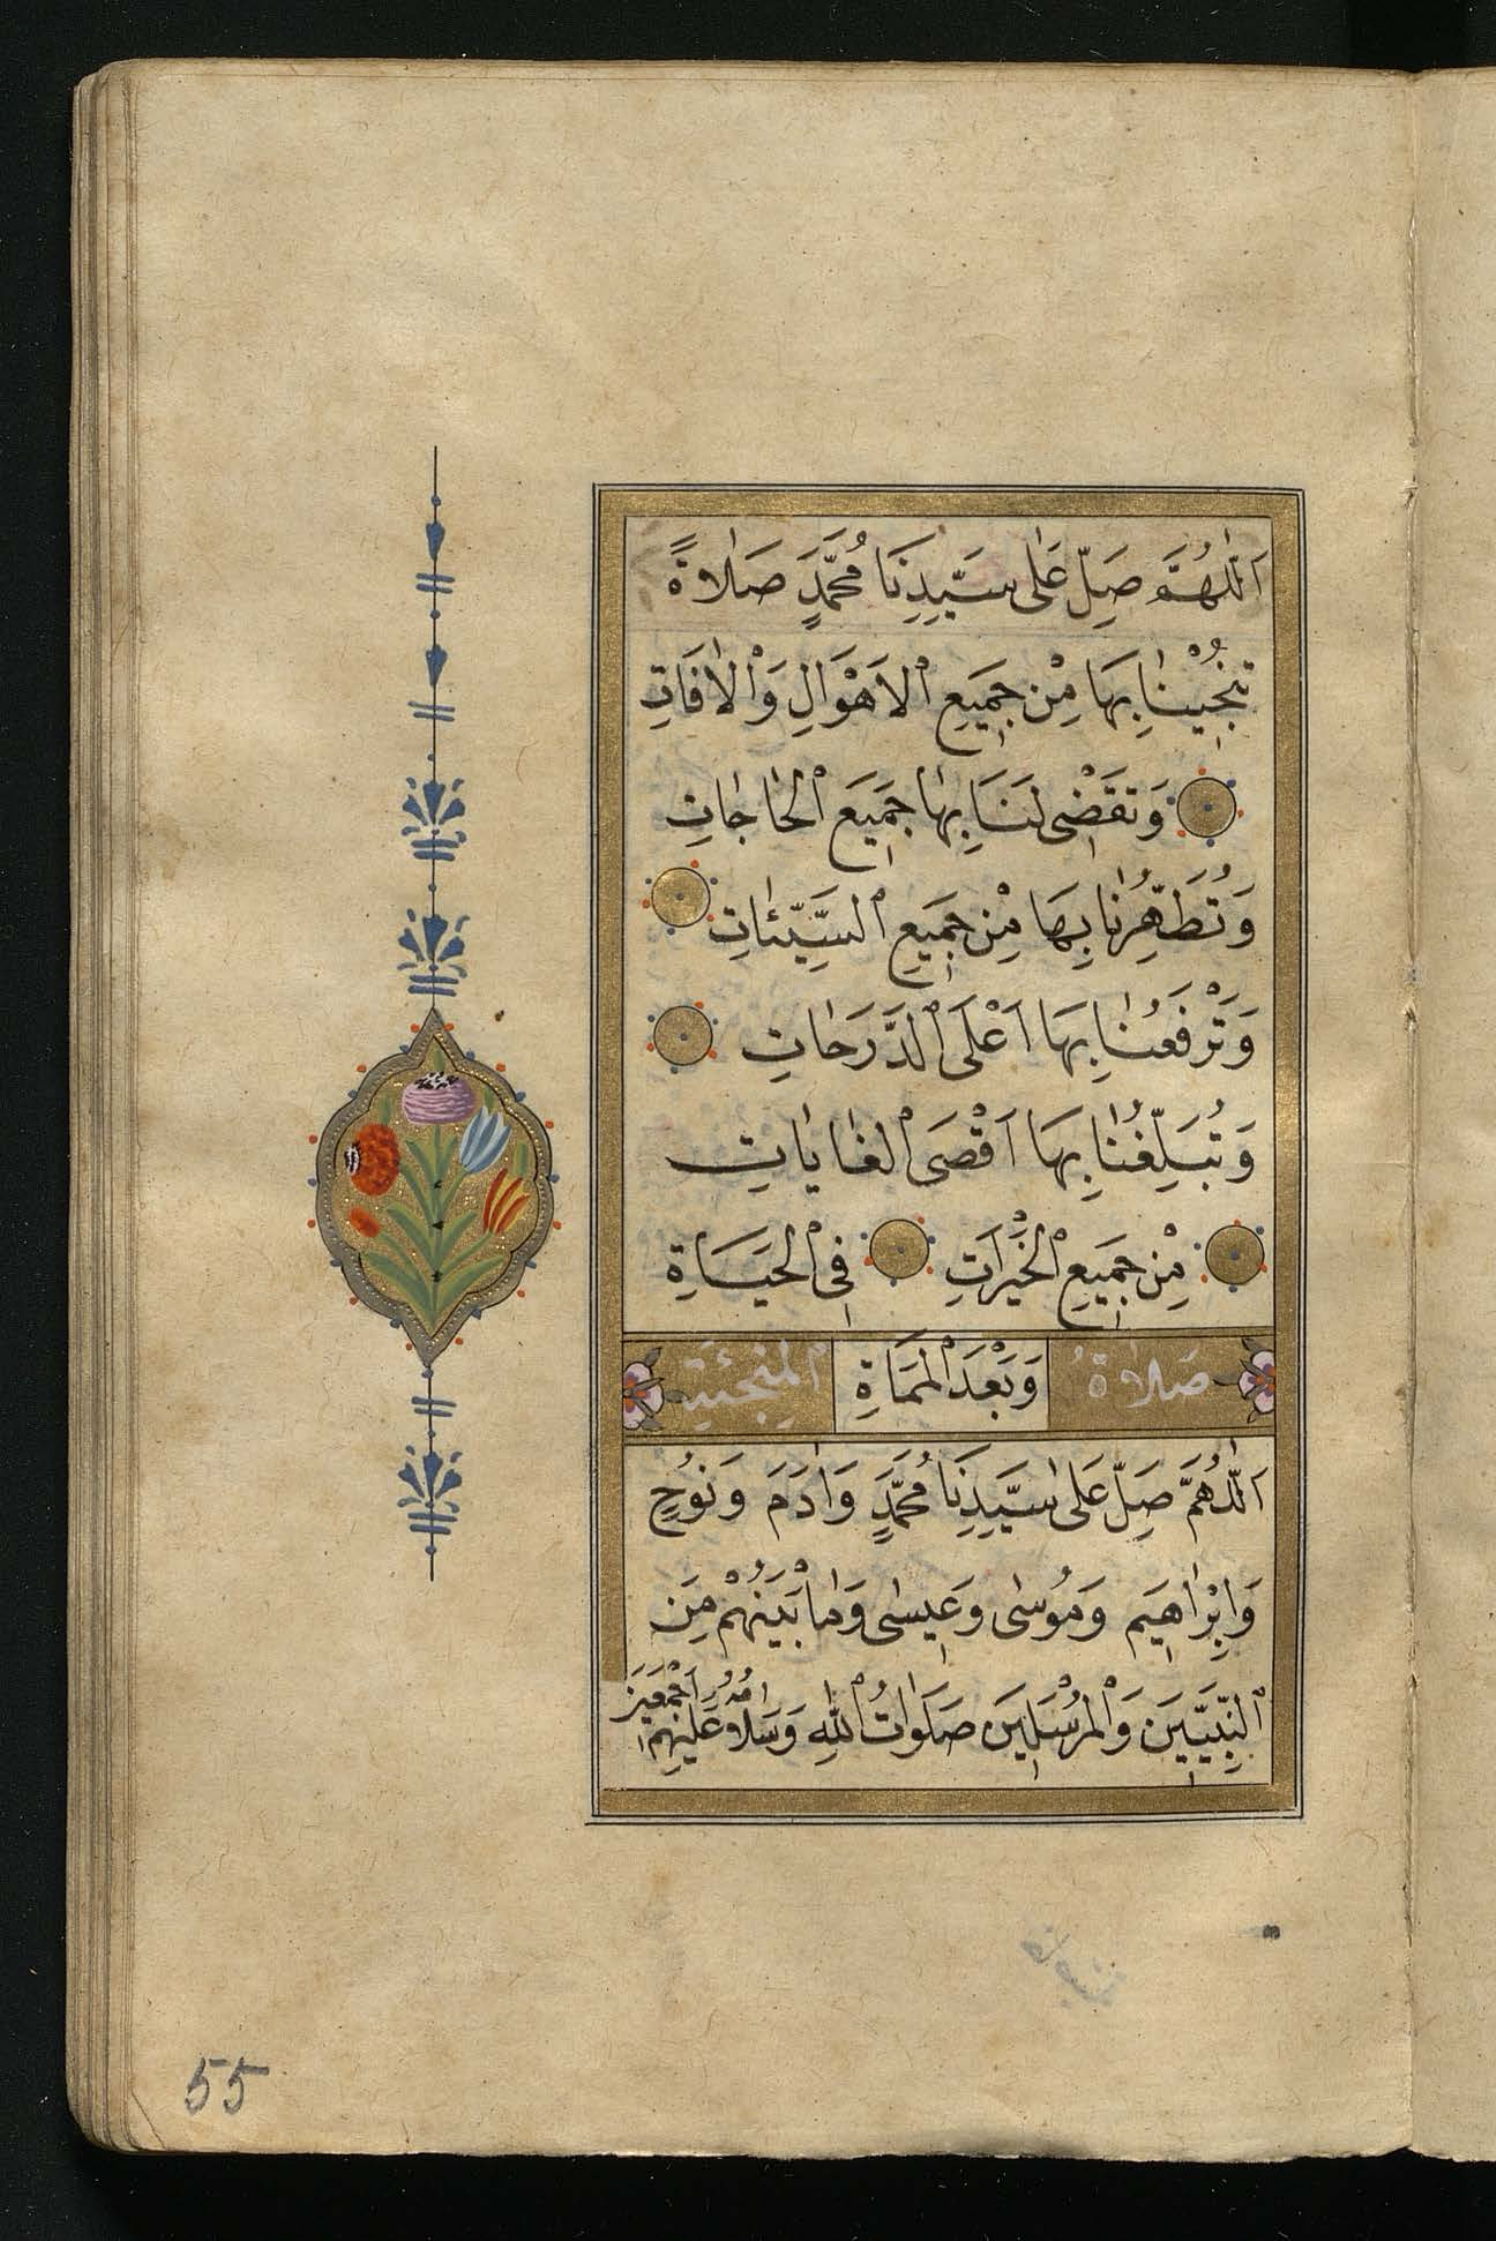 اَللّٰهُمَّ صَلِّ عَلٰى سَيِّدِنَا مُحَمَّدٍ صَلَاةً
تُنْجِينَا بِهَا مِنْ جَمِيعِ الْاَهْوَالِ وَالْاٰفَاتِ
وَتَقْضِى لَنَا بِهَا جَمِيعَ الْحَاجَاتِ
وَتُطَهِّرُنَا بِهَا مِنْ جَمِيعِ السَّيِّئَاتِ
وَتَرْفَعُنَا بِهَا اَعْلَى الدَّرَجَاتِ
وَتُبَلِّغُنَا بِهَا اَقْصَى الْغَايَاتِ
مِنْ جَمِيعِ الْخَيْرَاتِ فِى الْحَيَاةِ
صَلَاةُ وَبَعْدَ الْمَمَاةِ
اَللّٰهُمَّ صَلِّ عَلٰى سَيِّدِنَا مُحَمَّدٍ وَاٰدَمَ وَنُوْحٍ
وَاِبْرَاهِيمَ وَمُوسٰى وَعِيسٰى وَمَا بَيْنَهُمْ مِنَ
النَّبِيِّينَ وَالْمُرْسَلِينَ صَلَوَاتُ اللهِ وَسَلَامُهُ عَلَيْهِمْ اَجْمَعِينَ
55